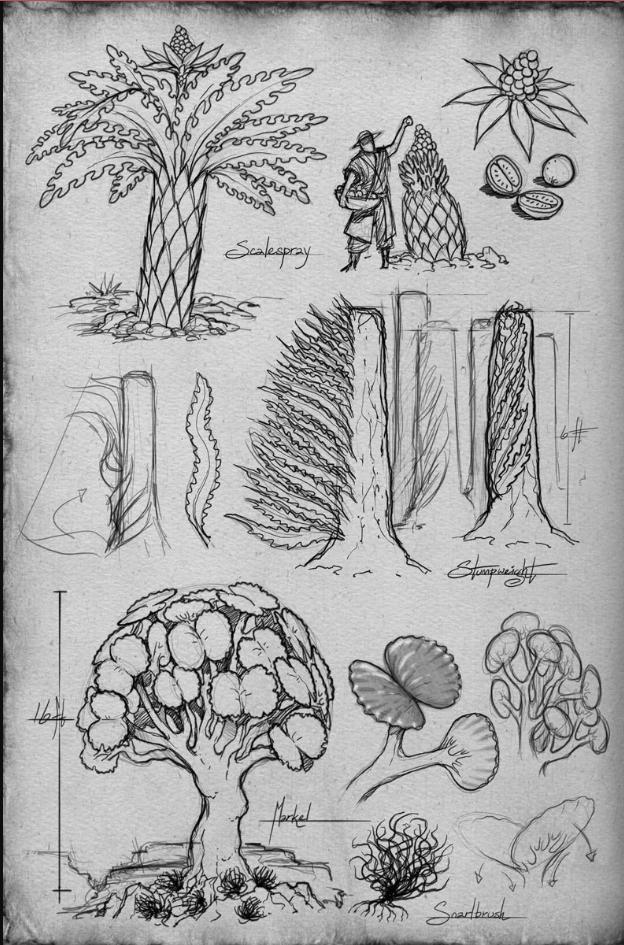 Scalespray
6 ft
Stumpweight
16 ft
Markel
Snarlbrush